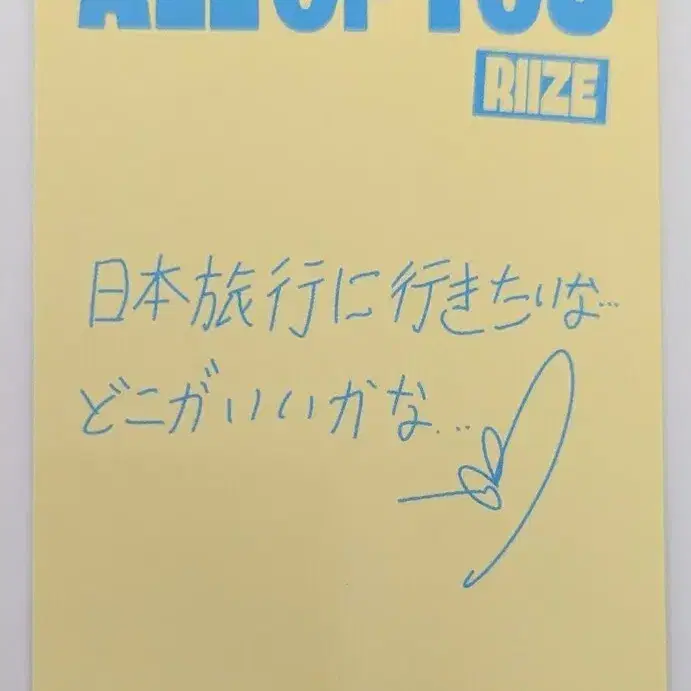 ALL OF YOU
RIIZE
日本旅行に行きたいな...
どこがいいかな...